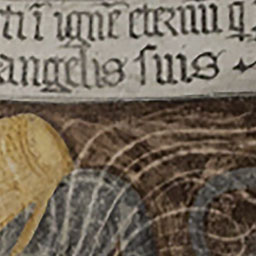 ti ī ignē eternū q
angelis suis